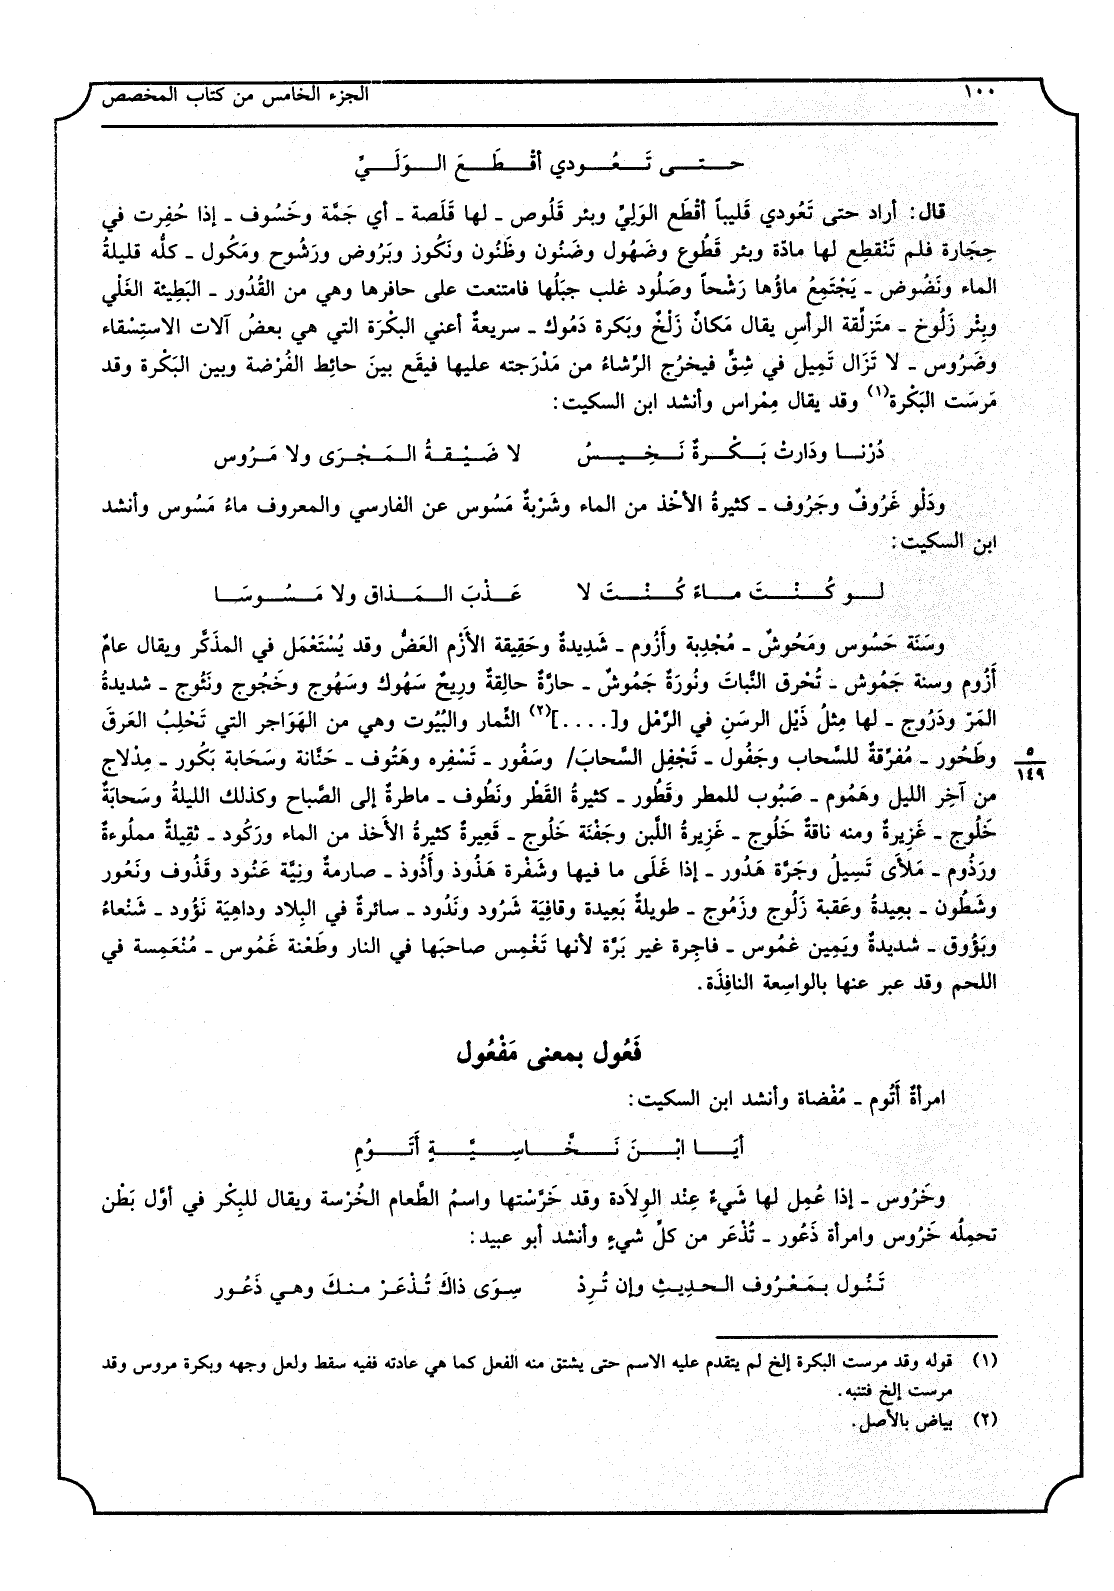 ١٠٠ الجزء الخامس من كتاب المخصص
حـتـى تَـعُـودي أقْـطَـعَ الـوَلَـيِّ
قال: أراد حتى تَعُودي قَليباً أقْطَع الوَلِيِّ وبئر قَلُوص ـ لها قَلَصة ـ أي جَمَّة وخَسُوف ـ إذا حُفِرت في
حِجَارة فلم تَنْقطِع لها مادّة وبئر قَطُوع وضَهُول وضَنُون وظَنُون ونَكُوز وبَرُوض ورَشُوح ومَكُول ـ كلُّه قليلةُ
الماء ونَضُوض ـ يَجْتَمِعُ ماؤُها رَشْحاً وصَلُود غلب جبَلُها فامتنعت على حافرها وهي من القُدُور ـ البَطِيئة الغَلْي
وبِئْر زَلُوخ ـ متَزلِّقة الرأسِ يقال مَكانٌ زَلْخٌ وبَكرة دَمُوك ـ سريعةٌ أعني البكْرَة التي هي بعضُ آلات الاستِسْقاء
وضَرُوس ـ لا تَزَال تَمِيل في شِقٍّ فيخرُج الرِّشاءُ من مَدْرَجته عليها فيقَع بينَ حائِط الفُرْضة وبين البَكْرة وقد
مَرسَت البَكْرة(١) وقد يقال مِمْراس وأنشد ابن السكيت:
دُرْنـا ودَارتْ بَـكْـرةٌ نَـخِـيـسُ لا ضَـيْـقـةُ الـمَـجْـرَى ولا مَـرُوس
ودَلْو غَرُوفٌ وجَرُوف ـ كثيرةُ الأخْذ من الماء وشَرْبةٌ مَسُوس عن الفارسي والمعروف ماءُ مَسُوس وأنشد
ابن السكيت:
لـو كُـنْـتَ مـاءً كُـنْـتَ لا عَـذْبَ الـمَـذاق ولا مَـسُـوسَـا
وسَنَة حَسُوس ومَحُوشٌ ـ مُجْدِبة وأَزُوم ـ شَدِيدةٌ وحَقِيقة الأزْم العَضُّ وقد يُسْتَعْمَل في المذكَّر ويقال عامٌ
أَزُوم وسنة جَمُوش ـ تُحْرِق النَّباتَ ونُورَةٌ جَمُوشٌ ـ حارَّةٌ حالِقةٌ ورِيحٌ سَهُوك وسَهُوج وخَجُوج ونَئُوج ـ شديدةُ
المَرّ ودَرُوج ـ لها مِثلُ ذَيْل الرسَنِ في الرَّمْل و[....](٢) الثِّمار والبُيُوت وهي من الهَوَاجر التي تَحْلِبُ العَرقَ
وطَحُور ـ مُفرِّقةٌ للسَّحاب وجَفُول ـ تَجْفِل السَّحابَ/ وسَفُور ـ تَسْفِره وهَتُوف ـ حَنَّانة وسَحَابة بَكُور ـ مِدْلاج
٥
١٤٩
من آخِر الليل وهَمُوم ـ صَبُوب للمطر وقَطُور ـ كثيرةُ القَطْر ونَطُوف ـ ماطرةٌ إلى الصَّباح وكذلك الليلةُ وسَحابَةٌ
خَلُوج ـ غَزِيرةٌ ومنه ناقةٌ خَلُوج ـ غَزِيرةُ اللَّبن وجَفْنَة خَلُوج ـ قَعِيرةٌ كثيرةُ الأَخذ من الماء ورَكُود ـ ثقِيلةٌ مملُوءةٌ
ورَذُوم ـ مَلأَى تَسِيلُ وجَرَّة هَدُور ـ إذا غَلَى ما فيها وشَفْرة هَذُوذ وأَذُوذ ـ صارمةٌ ونِيَّة عَنُود وقَذُوف ونَعُور
وشَطُون ـ بعِيدةُ وعَقبة زَلُوج وزَمُوج ـ طويلةٌ بَعِيدة وقافِيَة شَرُود ونَدُود ـ سائرةٌ في البِلاد وداهِيَة نَؤُود ـ شَنْعاءُ
وبَؤُوق ـ شديدةٌ ويَمِين غمُوس ـ فاجِرة غير بَرَّة لأنها تَغْمِس صاحبَها في النار وطَعْنة غَمُوس ـ مُنْغَمِسة في
اللحم وقد عبر عنها بالواسِعة النافِذَة.
فَعُول بمعنى مَفْعُول
امرأةٌ أَتُوم ـ مُفْضاة وأنشد ابن السكيت:
أيَـا ابْـنَ نَـخَّـاسِـيَّـةٍ أَتَـوُمِ
وخَرُوس ـ إذا عُمِل لها شَيءٌ عِنْد الوِلاَدة وقد خَرَّسْتها واسمُ الطَّعام الخُرْسة ويقال للبِكْر في أوَّل بَطْن
تحمِلُه خَرُوس وامرأة ذَعُور ـ تُذْعَر من كلِّ شيءٍ وأنشد أبو عبيد:
تَـنُول بـمَـعْـرُوف الـحـديـثِ وإن تُـرِدْ سِـوَى ذاكَ تُـذْعَـرْ مـنـكَ وهـي ذَعُـور
(١) قوله وقد مرست البكرة إلخ لم يتقدم عليه الاسم حتى يشتق منه الفعل كما هي عادته ففيه سقط ولعل وجهه وبكرة مروس وقد
مرست إلخ فتنبه.
(٢) بياض بالأصل.